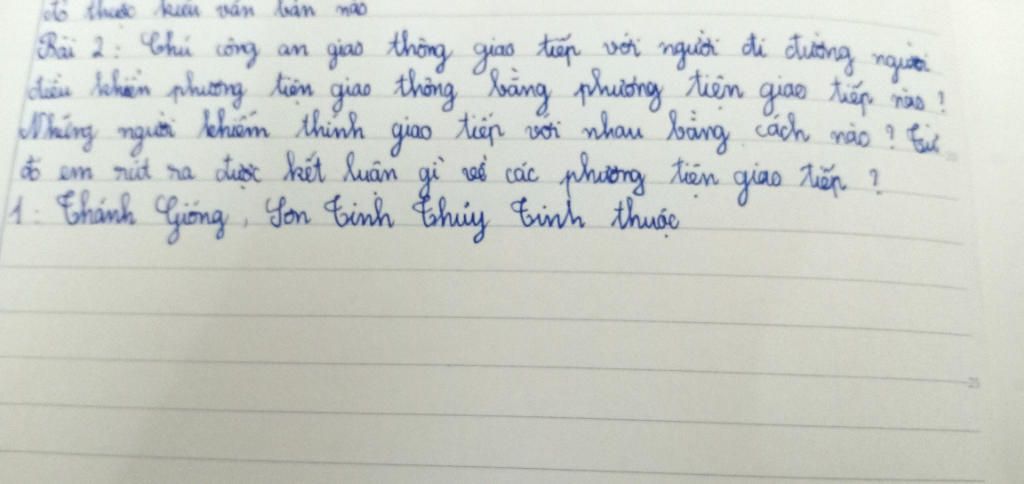 đó thuộc kiểu văn bản nào
Bài 2: Chú công an giao thông giao tiếp với người đi đường người
điều khiển phương tiện giao thông bằng phương tiện giao tiếp nào?
Những người khiếm thính giao tiếp với nhau bằng cách nào? Từ
đó em rút ra được kết luận gì về các phương tiện giao tiếp?
1: Thánh Gióng, Sơn Tinh Thủy Tinh thuộc
25